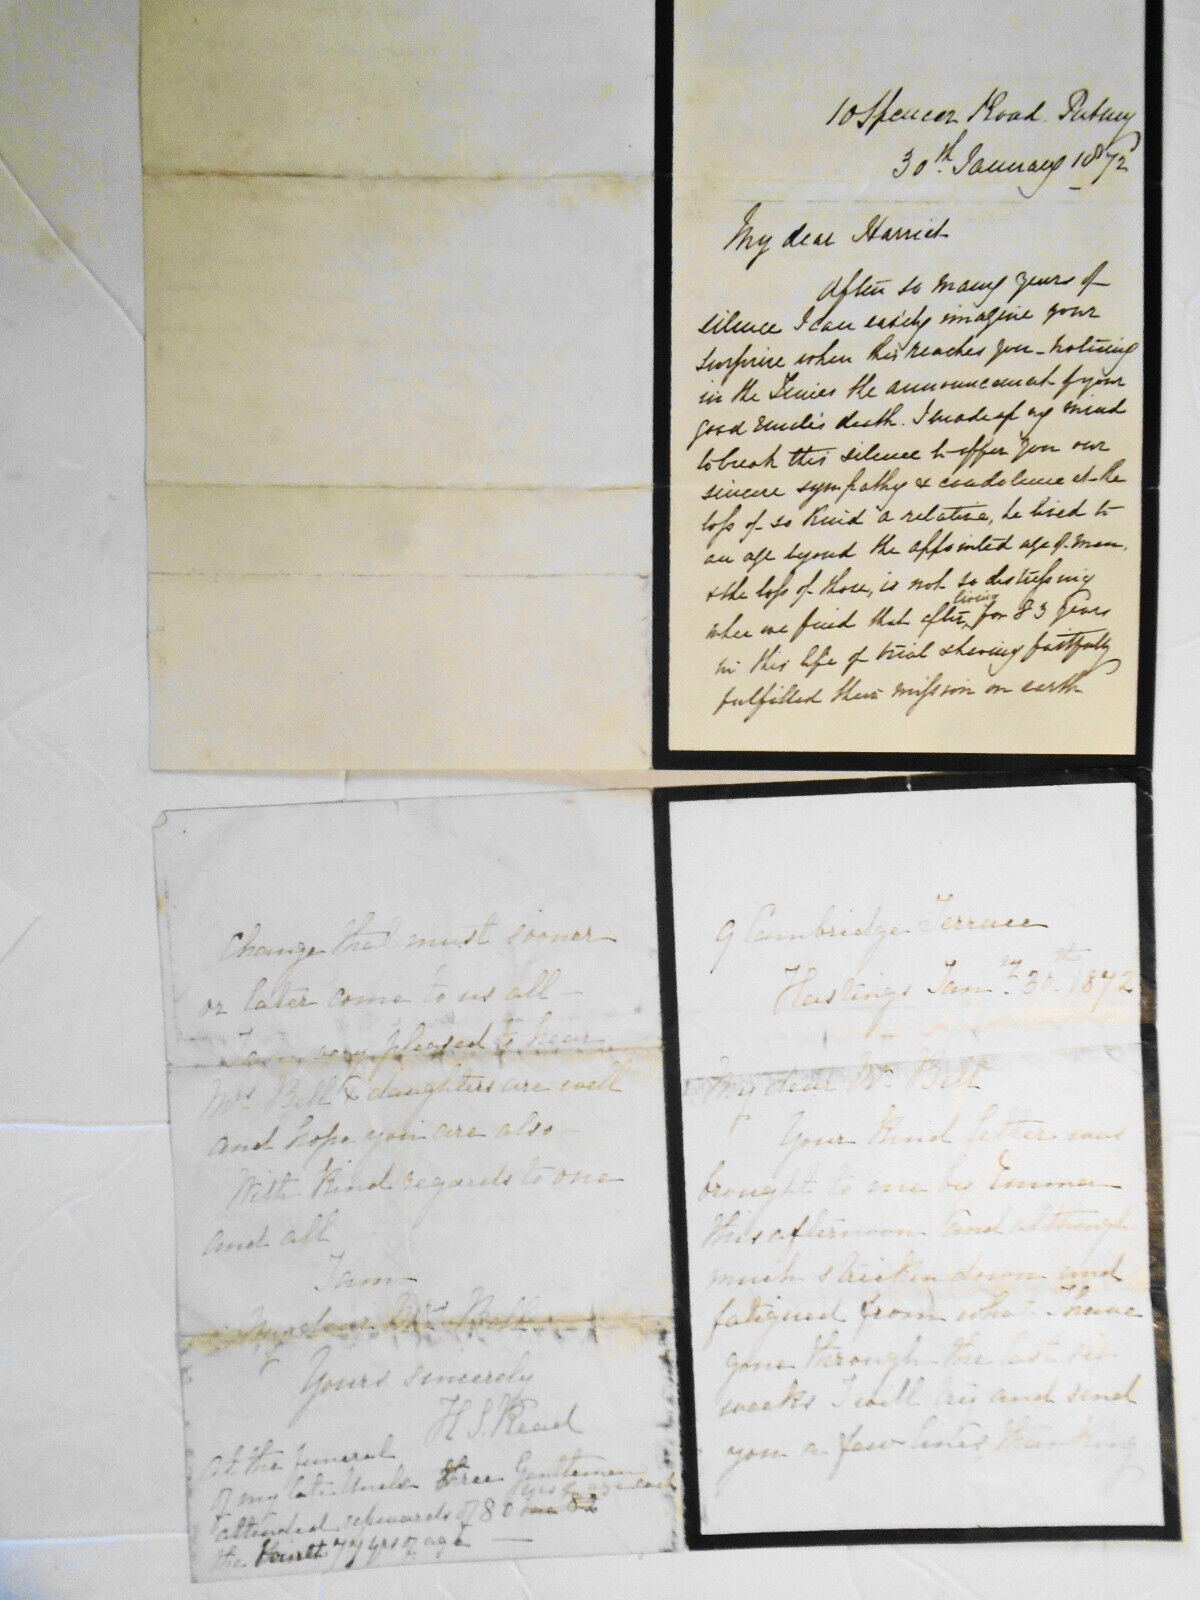 10 Spencer Road. Putney
30th. January 1872
My dear Harriet
After so many years of
silence I can easily imagine your
surprise when this reaches you - noticing
in the Times the announcement of your
good Uncle's death. I made up my mind
to break this silence to offer you our
sincere sympathy & condolence at the
loss of so kind a relative, he lived to
an age beyond the appointed age of man.
& the loss of those, is not so distressing
when we find that after living for 83 years
in this life of trial & having faithfully
fulfilled their mission on earth
Change that must sooner
or later come to us all -
I am very pleased to hear
Mrs Bell & daughters are well
and hope you are also -
With kind regards to one
and all
I am
My dear Mr Bell
Yours sincerely
H S. Read
at the funeral
of my late Uncle three Gentlemen
attended upwards of 80
the 77 yrs of age -
9 Cambridge Terrace
Hastings Jany. 30th. 1872
My dear Mr. Bell
Your kind letter was
brought to me by Emma
this afternoon and although
much stricken down and
fatigued from what I have
gone through the last six
weeks I will try and send
you a few lines, thanking